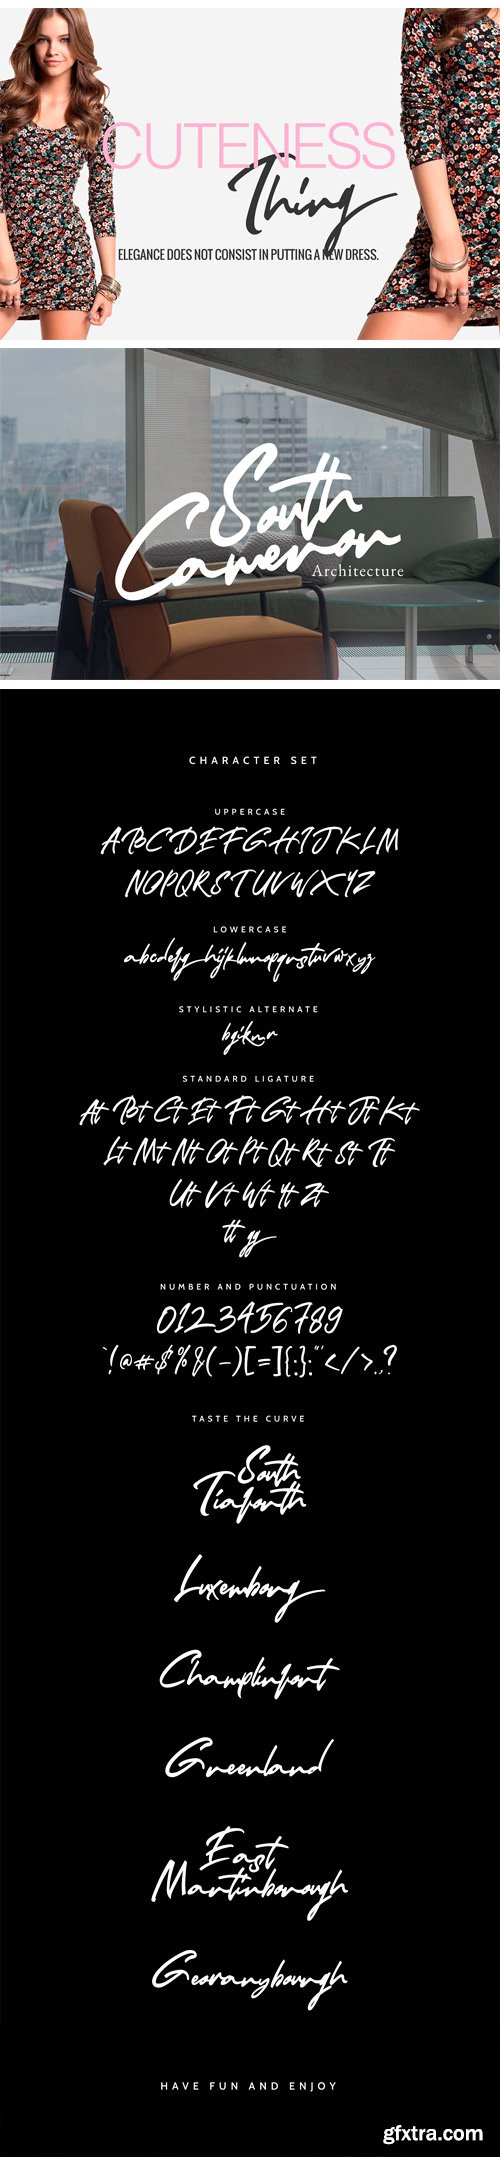 CUTENESS
Thing
ELEGANCE DOES NOT CONSIST IN PUTTING A NEW DRESS.
South
Cameron
Architecture
CHARACTER SET
UPPERCASE
ABCDEFGHIJKLM
NOPQRSTUVWXYZ
LOWERCASE
abcdefg hijklmnopqrstuvwxyz
STYLISTIC ALTERNATE
STANDARD LIGATURE
At Bt Ct Et Ft Gt Ht Jt Kt
Lt Mt Nt Ot Pt Qt Rt St Tt
Ut Vt Wt Yt Zt
tt gg
NUMBER AND PUNCTUATION
0123456789
TASTE THE CURVE
South
Luxembong
Champlinfont
Greenland
East
Martinborough
HAVE FUN AND ENJOY
gfxtra.com